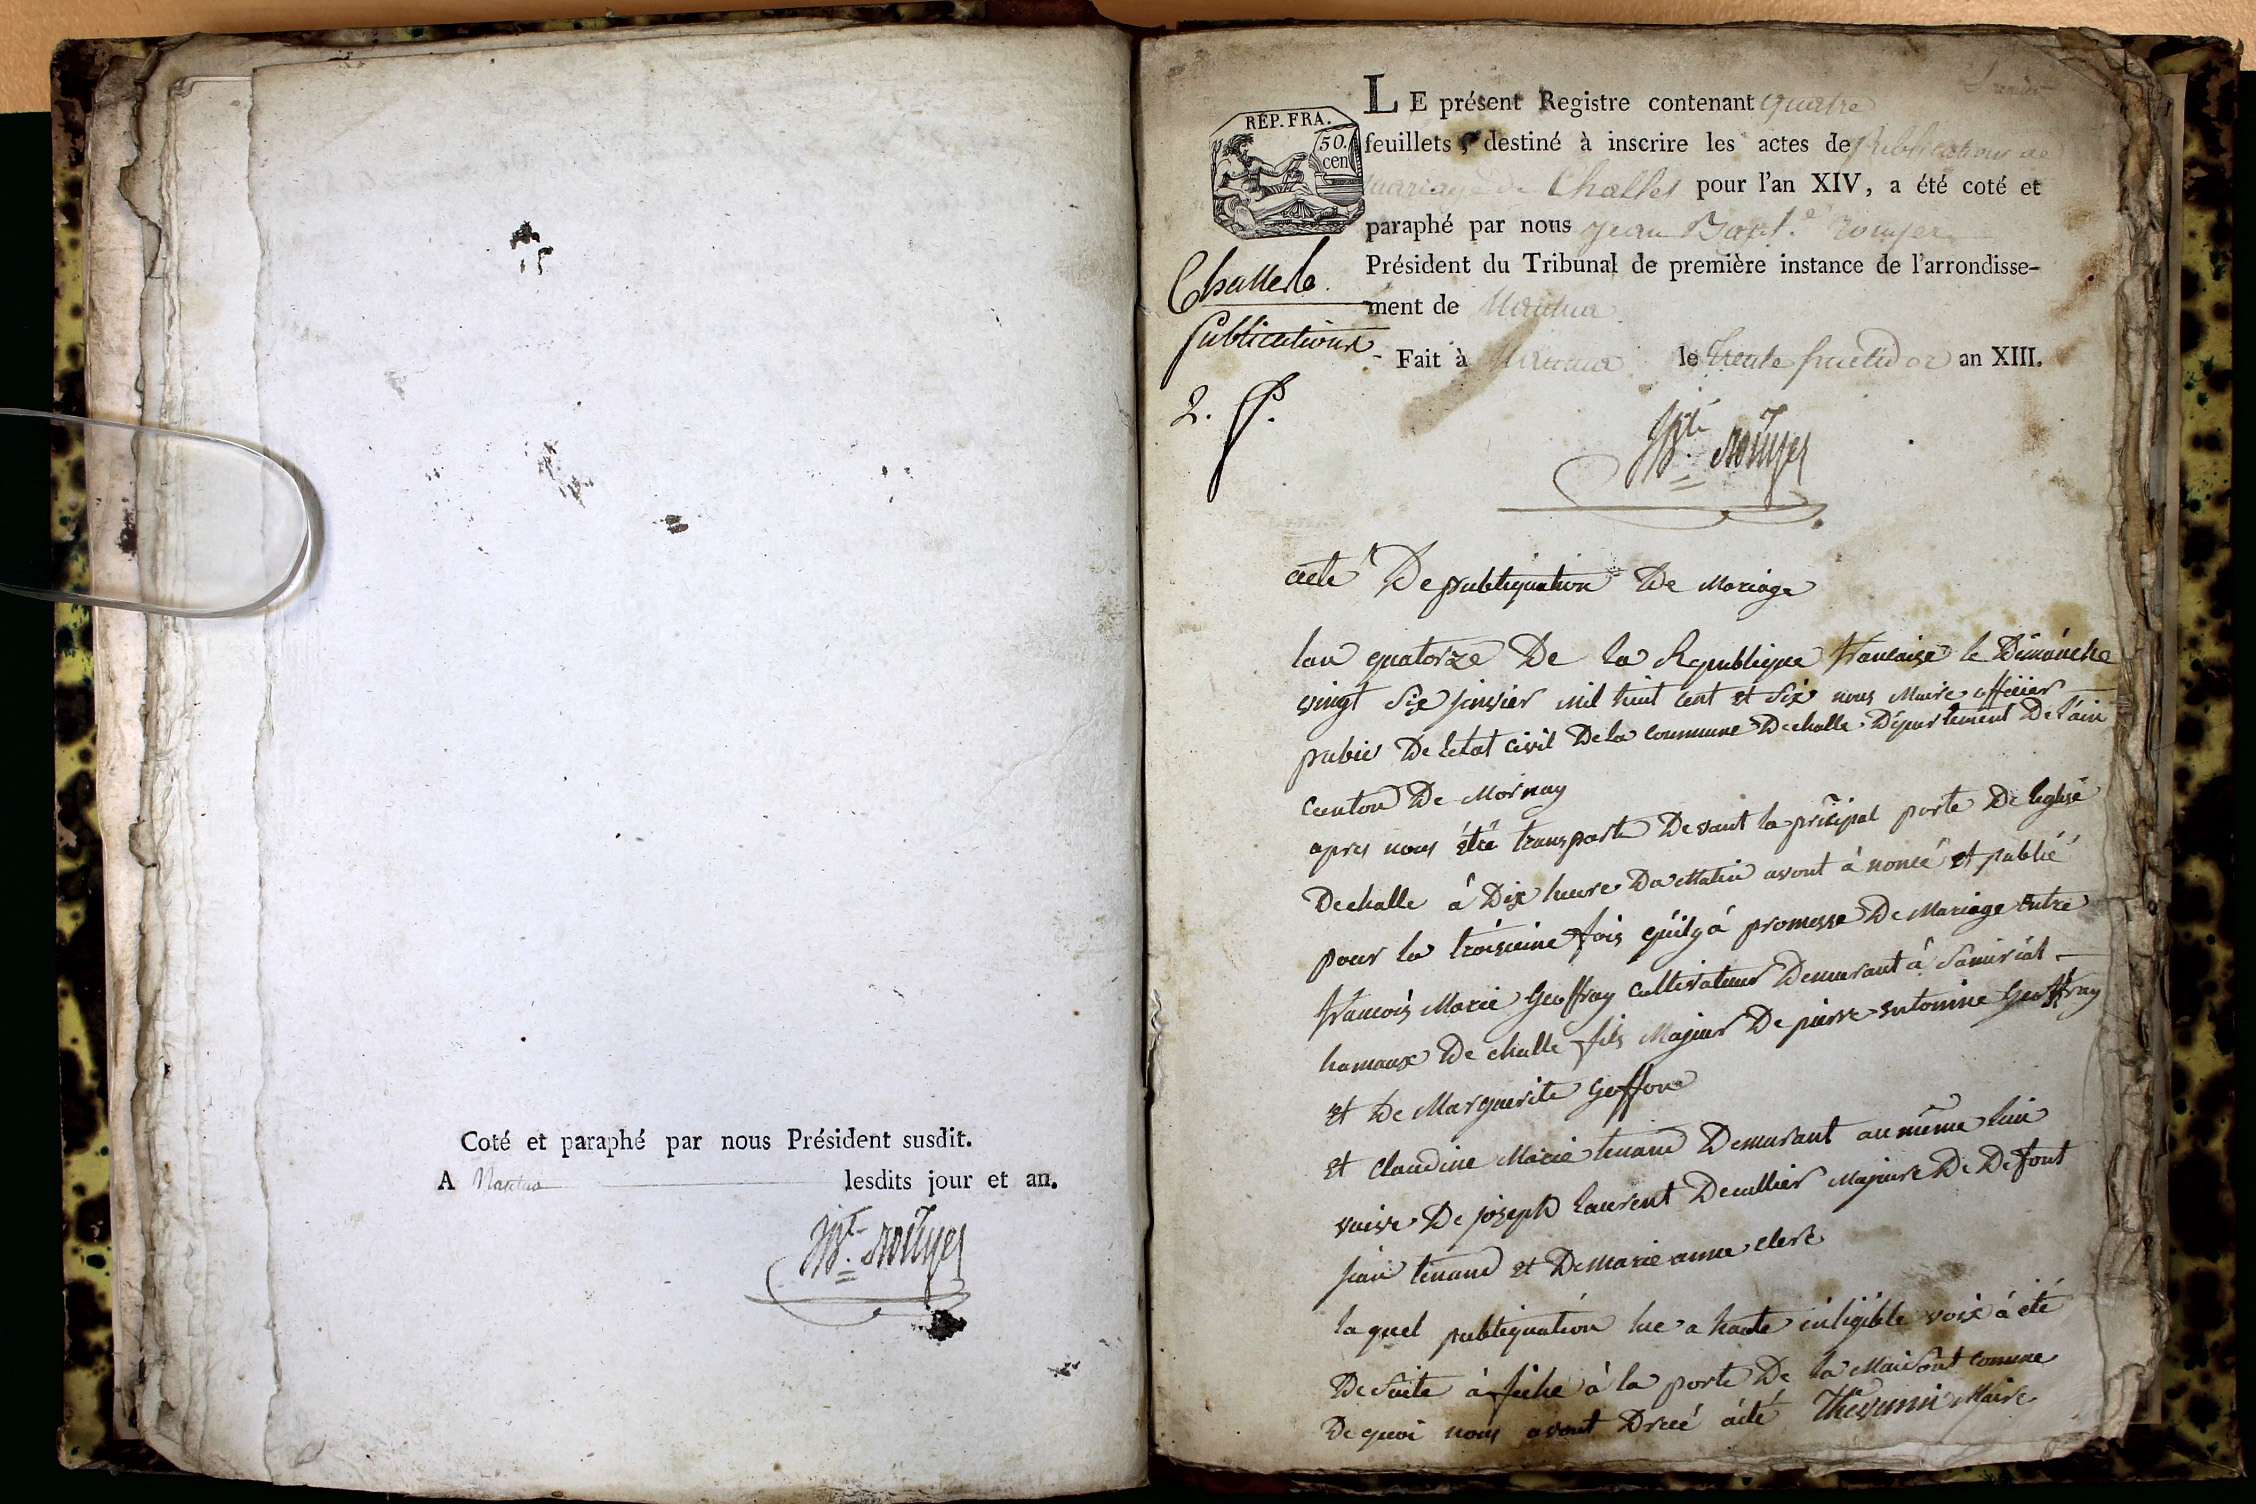 Coté et paraphé par nous Président susdit.
A Nantua lesdits jour et an.
JBte. Rouyer
RÉP. FRA.
50.
cen
LE présent Registre contenant quatre
feuillets, destiné à inscrire les actes de publications de
mariage de Challes pour l'an XIV, a été coté et
paraphé par nous Jean Bapte. Rouyer
Président du Tribunal de première instance de l'arrondisse-
ment de Nantua
Fait à Nantua le trente fructidor an XIII.
Challes
Publications
2.
JBte. Rouyer
acte De publiquation De Mariage
lan quatorze De la Republique francaise le Dimanche
vingt six janvier mil huit cent et six nous Maire officier
public De letat civil De la commune De challe Département De lain
canton De Mornay
apres nous étre transporte Devant la principal porte De leglise
De challe à Dix heure Du Matin avont à noncé et publié
pour la troisieme fois quil y à promesse De Mariage entre
francois Marie Geoffray cultivateur Demurant à
hamaux De challe fils Majeur De pierre antonine Geoffray
et De Marguerite Goffon
et claudine Marie tenand Demurant au même lieu
vaive De joseph laurent Decullier Majeure De Defont
jean tenand et De Marie anne clerc
laquel publiquation lue a haute inligible voix à été
De suite à fiche à la porte De la Maisont comune
De quoi nous avont Drecé acté Thevenin Maire